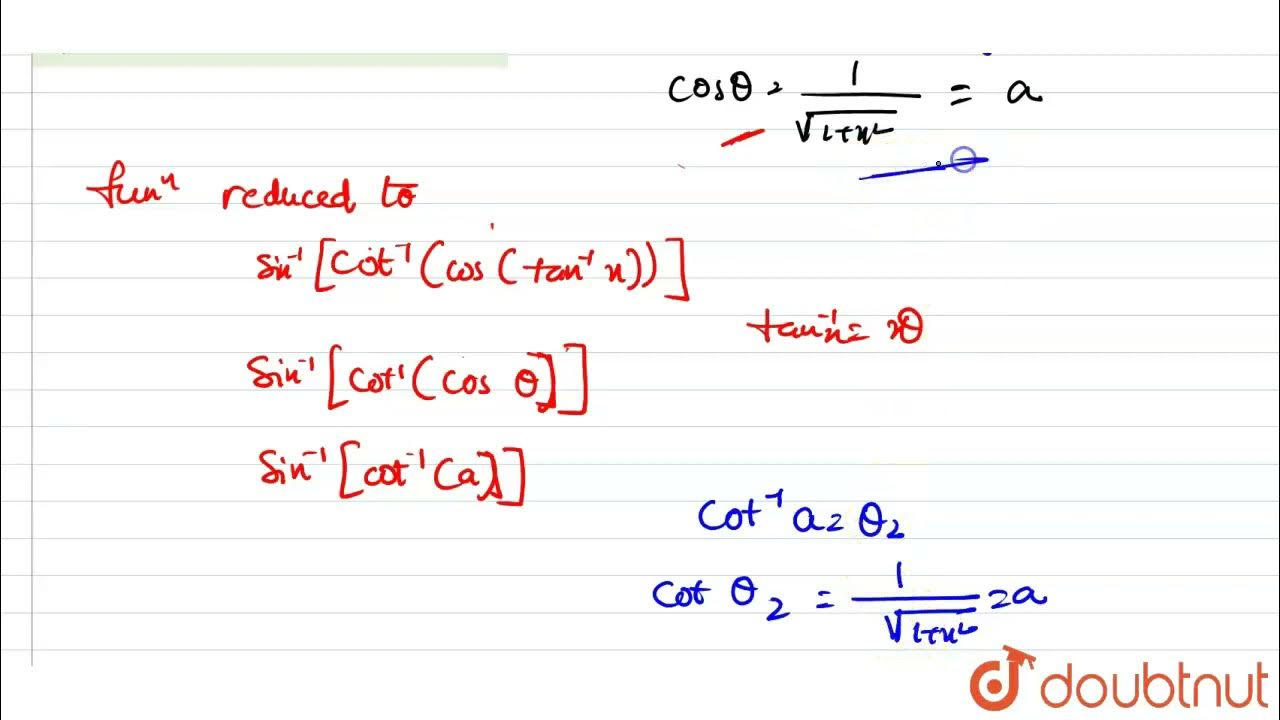 cosθ = 1/√(1+x²) = a
funⁿ reduced to
sin⁻¹[cot⁻¹(cos(tan⁻¹x))]
tan⁻¹x = θ
sin⁻¹[cot⁻¹(cos θ)]
sin⁻¹[cot⁻¹(a)]
cot⁻¹ a = θ₂
cot θ₂ = 1/√(1+x²) = a
doubtnut